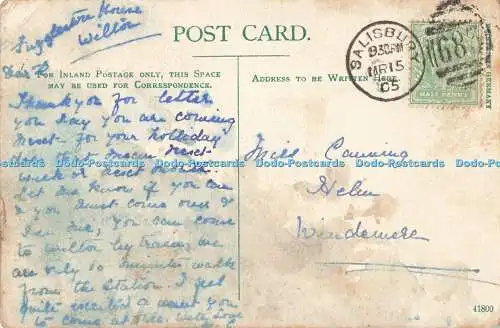 Fugglestone House
Wilton
POST CARD.
FOR INLAND POSTAGE ONLY, THIS SPACE
MAY BE USED FOR CORRESPONDENCE.
ADDRESS TO BE WRITTEN HERE.
SALISBURY
9.30PM
MR 15
05
683
HALF PENNY
GERMANY
Dear
Thank you for letter
you say you are coming
next for your holleday
do you mean next
week or next month
let me know if you can
& you must come over &
see me, you can come
to wilton by train, we
are only 10 minutes walk
from the station. I feel
quite excited & want you
to come at once. With Love
Miss Canning
Helm
Windermere
41800
Dodo-Postcards Dodo-Postcards Dodo-Postcards Dodo-Postcards Dodo-Postcards